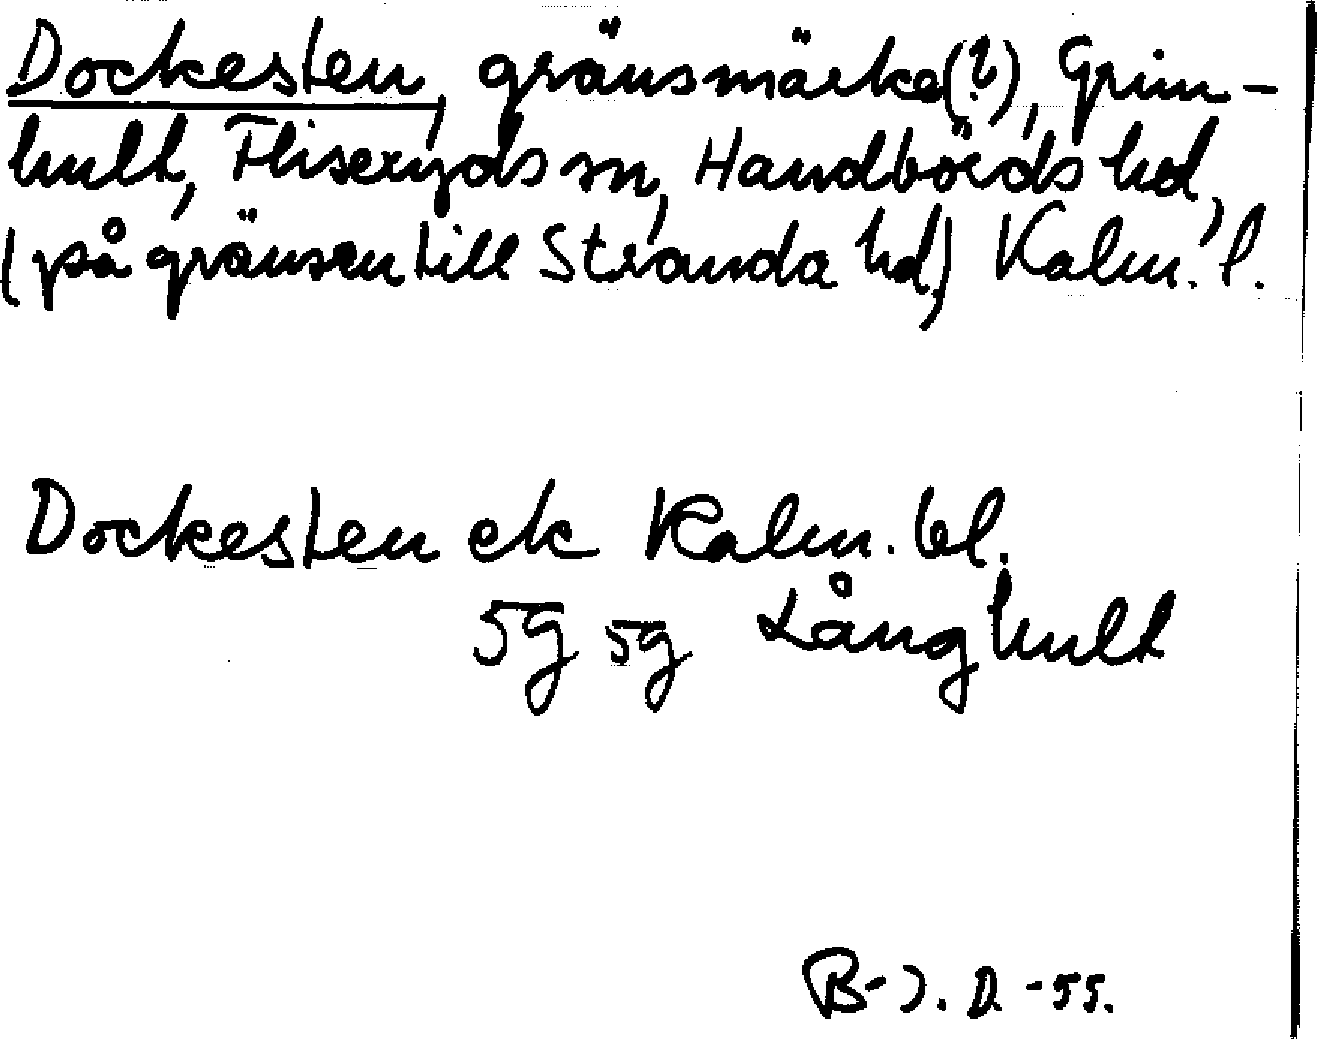 Dockesten, gränsmärke(?), Grim-
hult, Fliseryds sn, Handbörds hd,
(på gränsen till Stranda hd) Kalm. l.
Dockesten ek Kalm. bl.
5g 5g Långhult
B-J. D. -55.